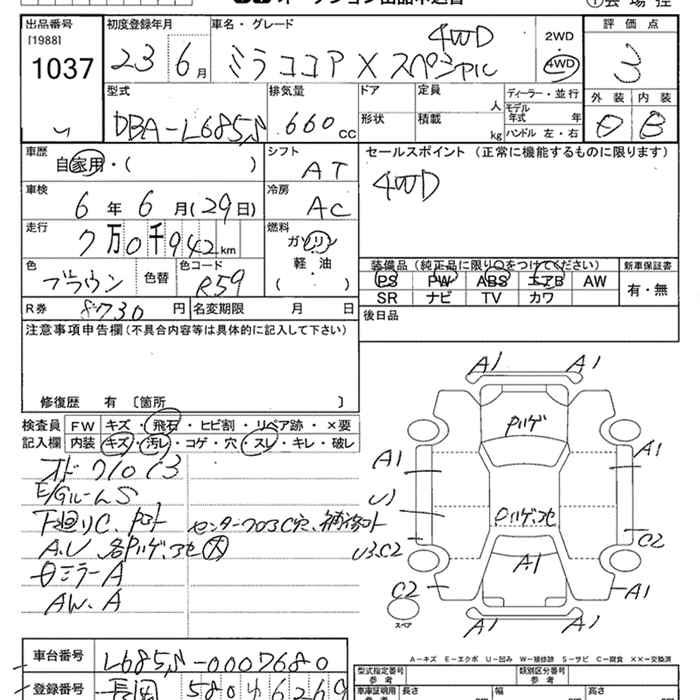 オークション出品申込書
出品番号 初度登録年月 車名・グレード 評価点
[1988] 1037 23年6月 ミラココア X スペシャル 4WD 2WD 4WD 3
型式 排気量 ドア 定員 人 ディーラー・並行 外装 内装
DBA-L685S 660cc 形状 積載 kg モデル年式 年 ハンドル 左・右 B
車歴 自家用・( ) シフト AT セールスポイント (正常に機能するものに限ります)
車検 6年6月(29日) 冷房 AC 4WD
走行 7万0千942km 燃料 ガソリン 軽・油 ( )
色 ブラウン 色替 色コード R59 装備品 (純正品に限り○をつけてください) 新車保証書
PS PW ABS エアB AW 有・無
SR ナビ TV カワ
R券 8730円 名変期限 月 日 後日品
注意事項申告欄 (不具合内容等は具体的に記入して下さい)
修復歴 有 〔箇所 〕
検査員 FW キズ・飛石・ヒビ割・リペア跡・×要
記入欄 内装 キズ・汚レ・コゲ・穴・スレ・キレ・破レ
E/Gルーム S
下廻りC
A.U
ミラーA
AW.A
A1 A1
A1 A1
U1
U3.C2 C2
A1
C2 A1
スペア
A1 A1
A-キズ E-エクボ U-凹み W-補修跡 S-サビ C-腐食 XX-交換済
車台番号 L685S-0007680
登録番号 長岡 580 6269
型式指定番号 参考 類別区分番号 参考
車庫証明用 長さ 幅 高さ